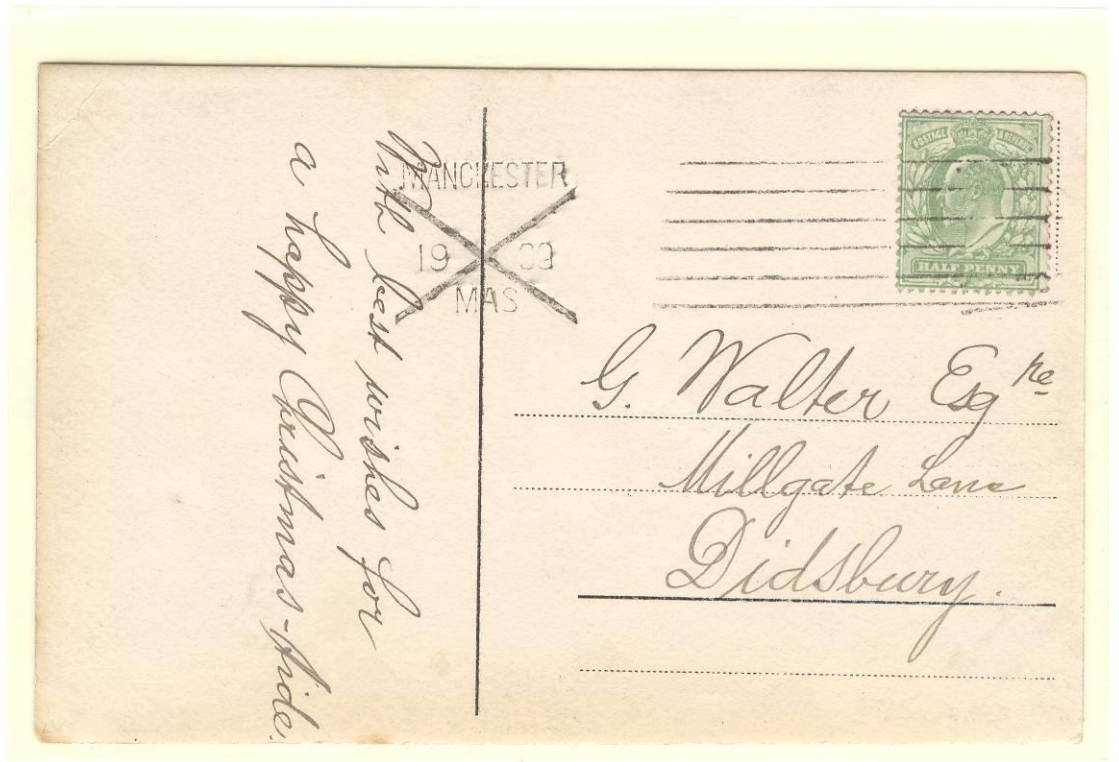 With best wishes for
a happy Christmas-tide.
MANCHESTER
19
X MAS
POSTAGE & REVENUE
HALF PENNY
G. Walter Esqre
Millgate Lane
Didsbury.